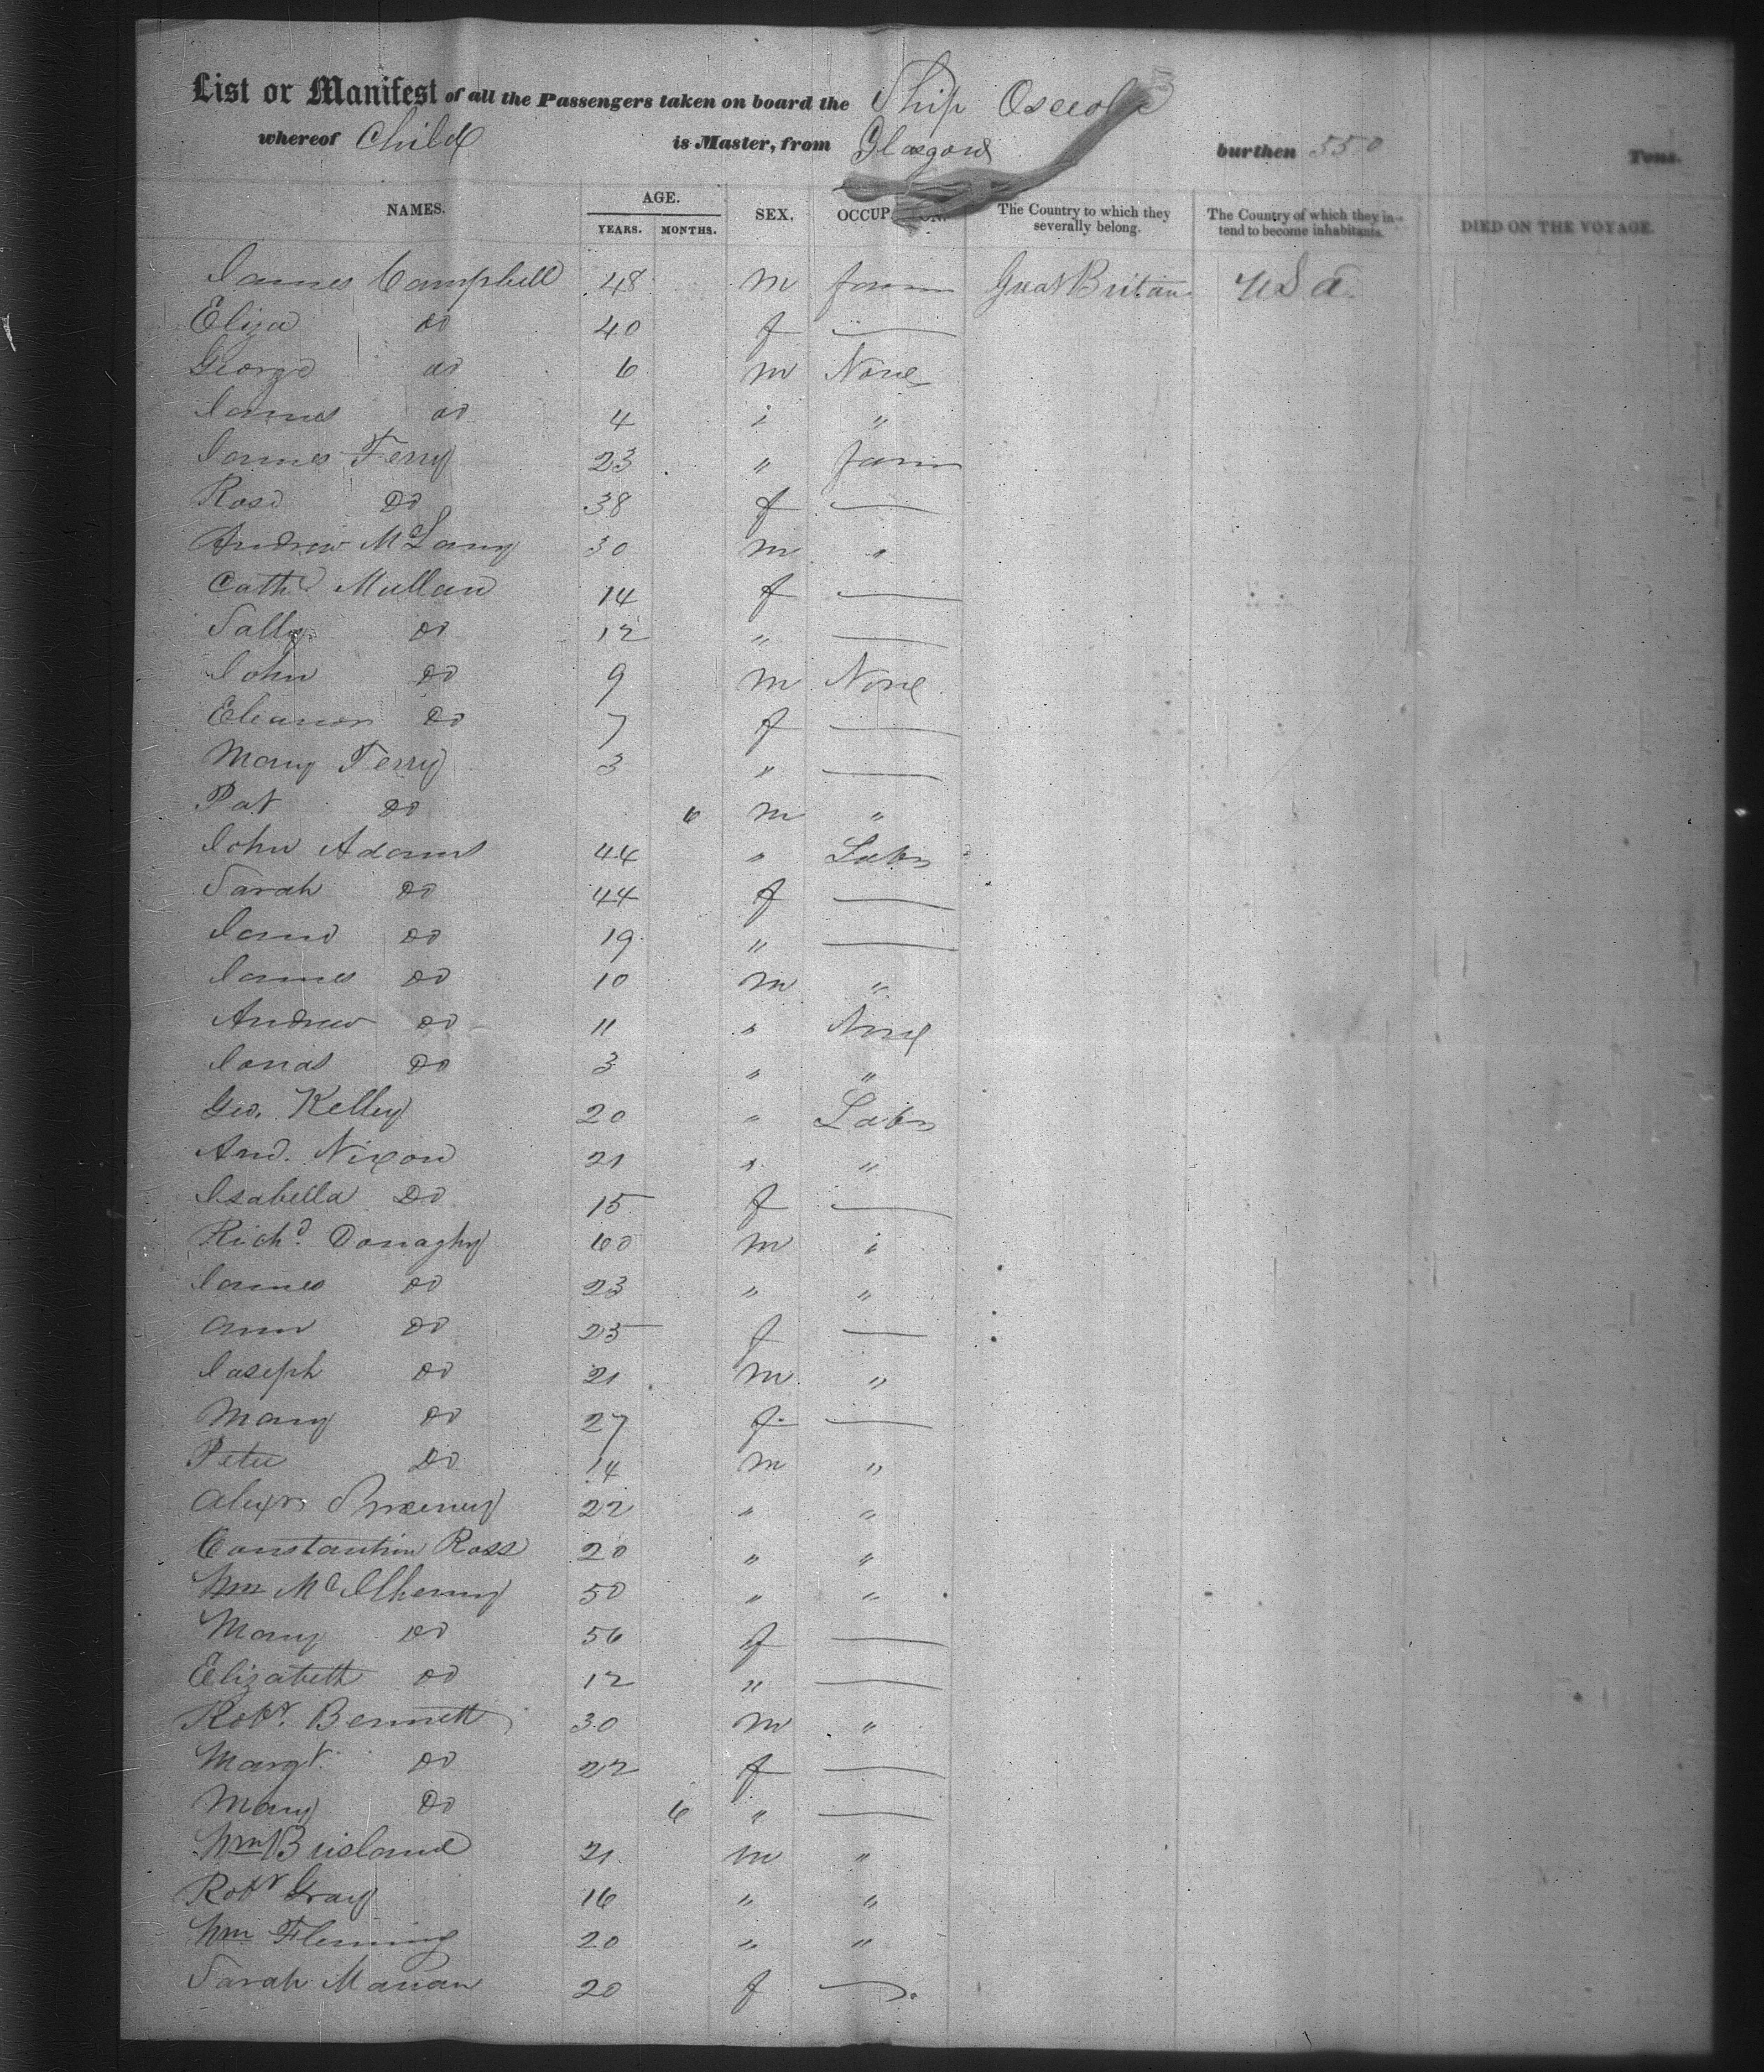 List or Manifest of all the Passengers taken on board the Ship Osceola
whereof Child is Master, from Glasgow burthen 550 Tons.
NAMES. AGE. YEARS. MONTHS. SEX. OCCUPATION. The Country to which they severally belong. The Country of which they intend to become inhabitants. DIED ON THE VOYAGE.
James Campbell 48 m farm Great Britain U S a
Eliza do 40 f —
George do 6 m None
James do 4 " "
James Ferry 23 " farm
Rose Do 38 f —
Andrew 30 m "
Cath Mullan 14 f —
Sally do 12 " —
John do 9 m None
Eleanor Do 7 f —
Mary Ferry 3 " —
Pat Do 6 m "
John Adams 44 " Labr
Sarah Do 44 f —
Jane Do 19 " —
James Do 10 m "
Andrew Do 11 " None
Jonas Do 3 " "
Geo. Kelley 20 " Labr
And. Nixon 21 " "
Isabella Do 15 f —
Richd. Donaghy 60 m "
James do 23 " "
Ann Do 25 f —
Joseph do 21 m "
Mary do 27 f —
Peter Do 14 m "
Alexr Sweeney 22 " "
Constantine Ross 20 " "
Wm McIlhenny 50 " "
Mary do 56 f —
Elizabeth do 12 " —
Robt. Bennett 30 m "
Margt. do 22 f —
Mary Do 6 " —
Wm 21 m "
Robt Gray 16 " "
Wm Fleming 20 " "
Sarah 20 f —